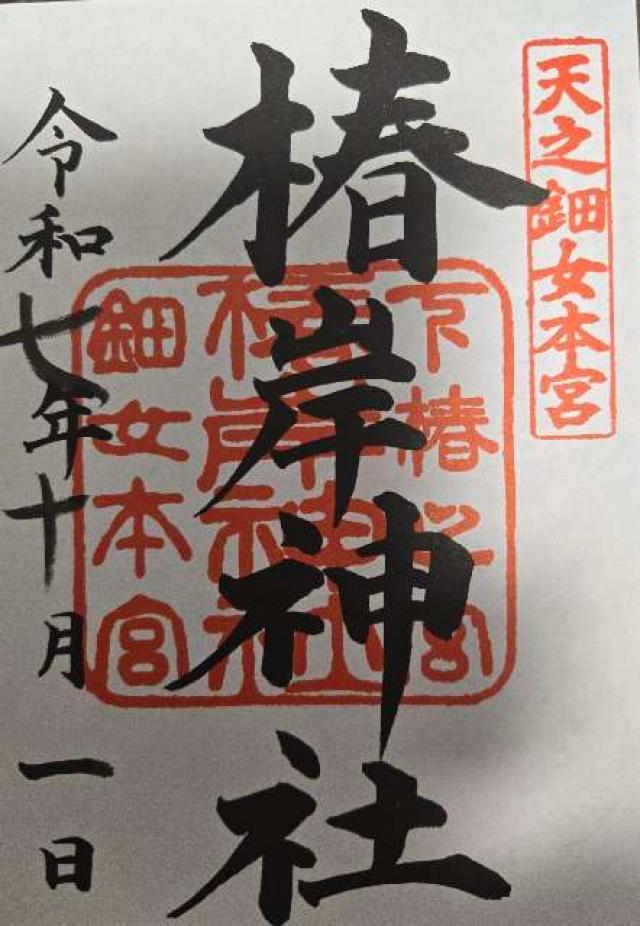 天之鈿女本宮
椿岸神社
下椿之宮
椿岸神社
鈿女本宮
令和七年十月一日